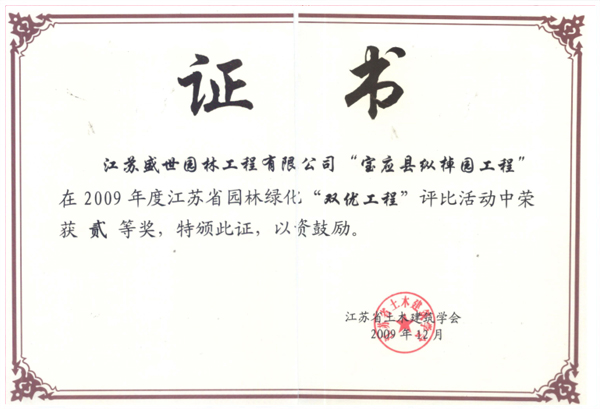 证 书
江苏盛世园林工程有限公司“宝应县纵棹园工程”
在2009年度江苏省园林绿化“双优工程”评比活动中荣
获 贰 等奖，特颁此证，以资鼓励。
江苏省土木建筑学会
2009年12月
江苏省土木建筑学会